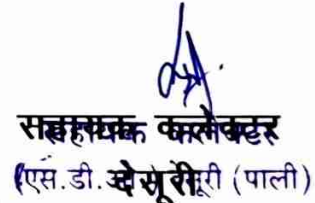 सहायक कलेक्टर
(एस.डी.ओ.) देसूरी (पाली)
देसूरी